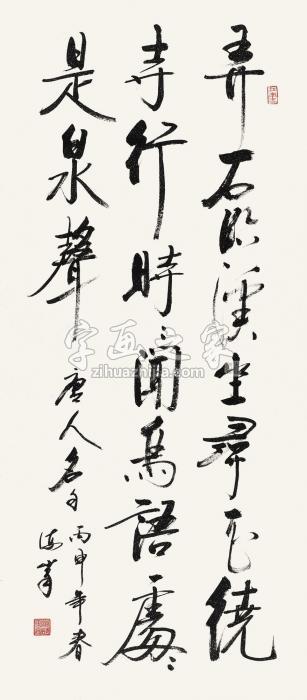 弄石臨溪坐尋花繞
寺行時時聞鳥語處處
是泉聲唐人名句丙申年春
字画之家
zihuazhijia.com